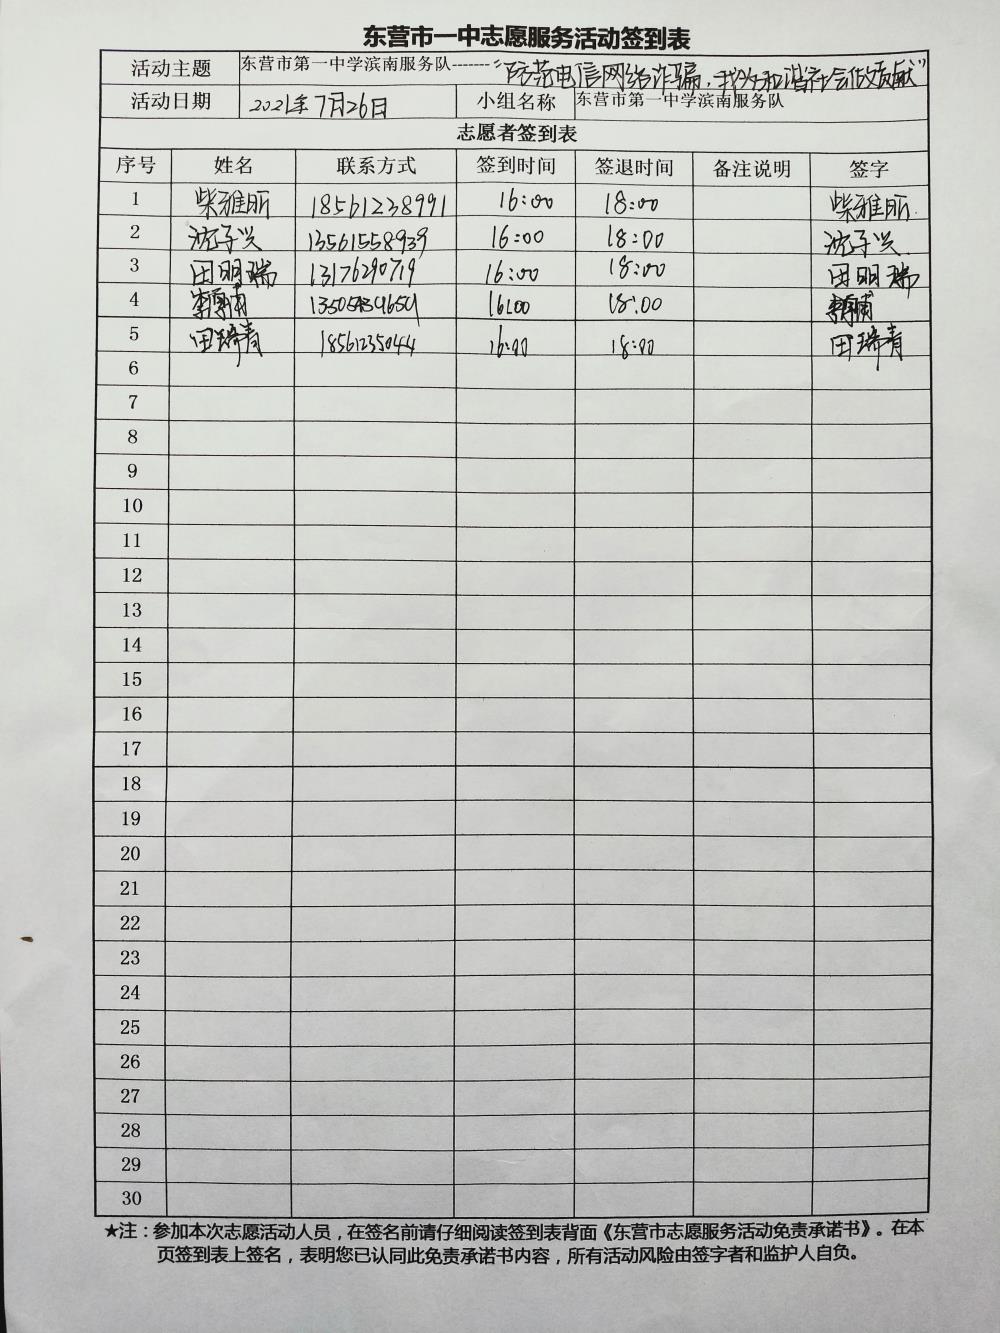 东营市一中志愿服务活动签到表
活动主题 东营市第一中学滨南服务队-------“防范电信网络诈骗,我为和谐社会做贡献”
活动日期 2021年7月26日 小组名称 东营市第一中学滨南服务队
志愿者签到表
序号 姓名 联系方式 签到时间 签退时间 备注说明 签字
1 柴雅丽 18561238991 16:00 18:00 柴雅丽
2 沈子兴 13561558939 16:00 18:00 沈子兴
3 田明瑞 13176290719 16:00 18:00 田明瑞
4 16:00 18:00
5 田瑞青 18561235044 16:00 18:00 田瑞青
6
7
8
9
10
11
12
13
14
15
16
17
18
19
20
21
22
23
24
25
26
27
28
29
30
★注：参加本次志愿活动人员，在签名前请仔细阅读签到表背面《东营市志愿服务活动免责承诺书》。在本
页签到表上签名，表明您已认同此免责承诺书内容，所有活动风险由签字者和监护人自负。